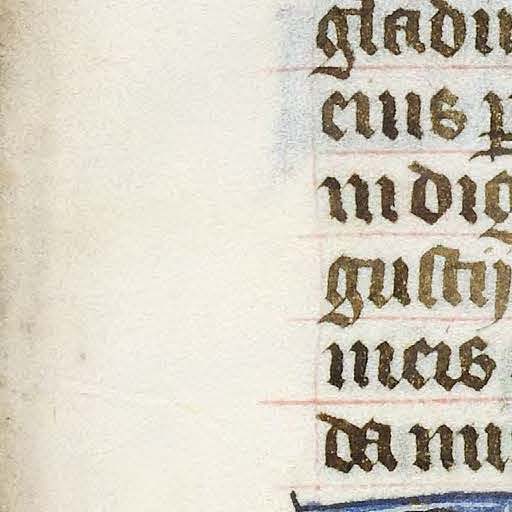 gladiu
eius p
indig
gustij
meis
da mi